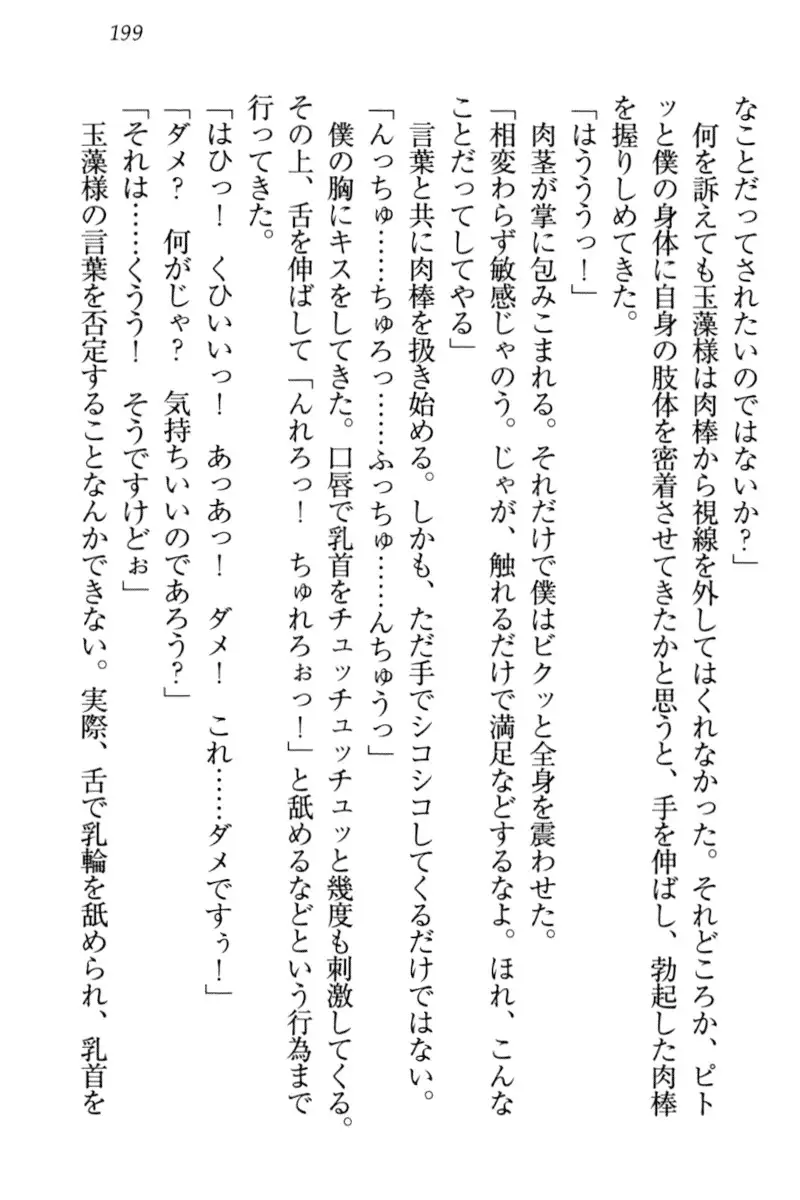 199
なことだってされたいのではないか？」
　何を訴えても玉藻様は肉棒から視線を外してはくれなかった。それどころか、ピト
ッと僕の身体に自身の肢体を密着させてきたかと思うと、手を伸ばし、勃起した肉棒
を握りしめてきた。
「はうううっ！」
　肉茎が掌に包みこまれる。それだけで僕はビクッと全身を震わせた。
「相変わらず敏感じゃのう。じゃが、触れるだけで満足などするなよ。ほれ、こんな
ことだってしてやる」
　言葉と共に肉棒を扱き始める。しかも、ただ手でシコシコしてくるだけではない。
「んっちゅ……ちゅろっ……ふっちゅ……んちゅうっ」
　僕の胸にキスをしてきた。口唇で乳首をチュッチュッチュッと幾度も刺激してくる。
その上、舌を伸ばして「んれろっ！　ちゅれろぉっ！」と舐めるなどという行為まで
行ってきた。
「はひっ！　くひいいっ！　あっあっ！　ダメ！　これ……ダメですぅ！」
「ダメ？　何がじゃ？　気持ちいいのであろう？」
「それは……くうう！　そうですけどぉ」
　玉藻様の言葉を否定することなんかできない。実際、舌で乳輪を舐められ、乳首を